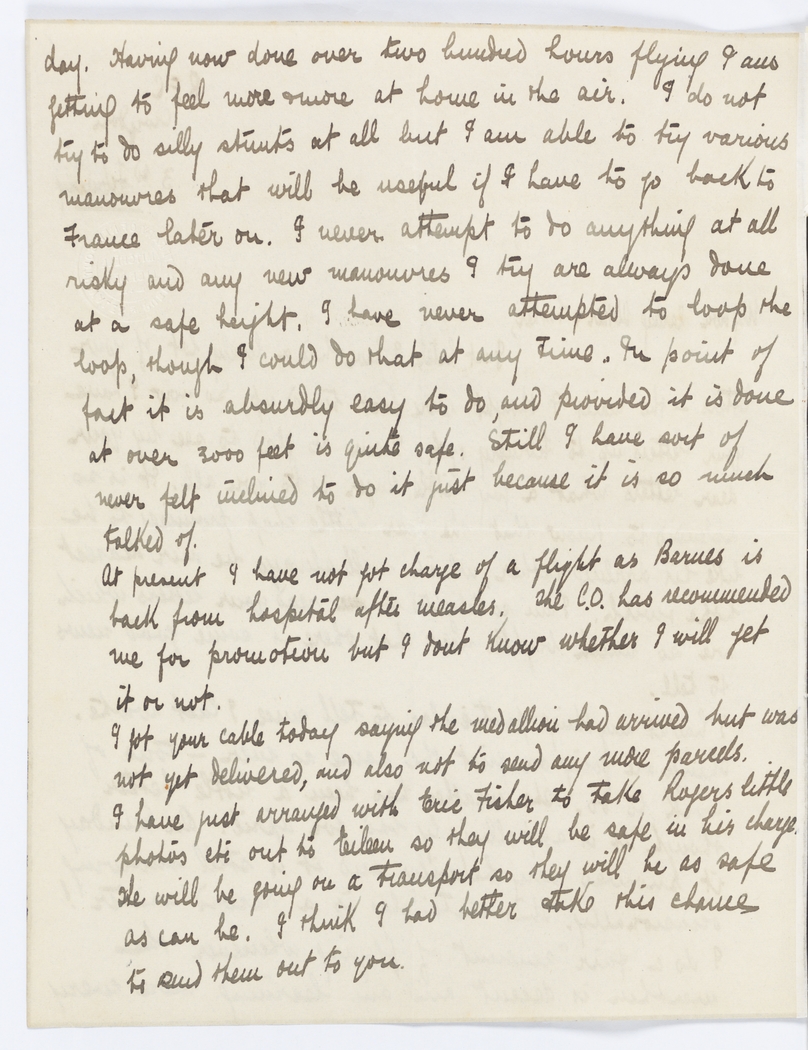 day. Having now done over two hundred hours flying I am
getting to feel more & more at home in the air. I do not
try to do silly stunts at all but I am able to try various
manouvres that will be useful if I have to go back to
France later on. I never attempt to do anything at all
risky and any new manouvres I try are always done
at a safe height. I have never attempted to loop the
loop, though I could do that at any time. In point of
fact it is absurdly easy to do, and provided it is done
at over 3000 feet is quite safe. Still I have sort of
never felt inclined to do it just because it is so much
talked of.
At present I have not got charge of a flight as Barnes is
back from hospital after measles. The C.O. has recommended
me for promotion but I dont know whether I will get
it or not.
I got your cable today saying the medallion had arrived but was
not yet delivered, and also not to send any more parcels.
I have just arranged with Eric Fisher to take Rogers little
photos etc out to Eileen so they will be safe in his charge.
He will be going on a transport so they will be as safe
as can be. I think I had better take this chance
to send them out to you.